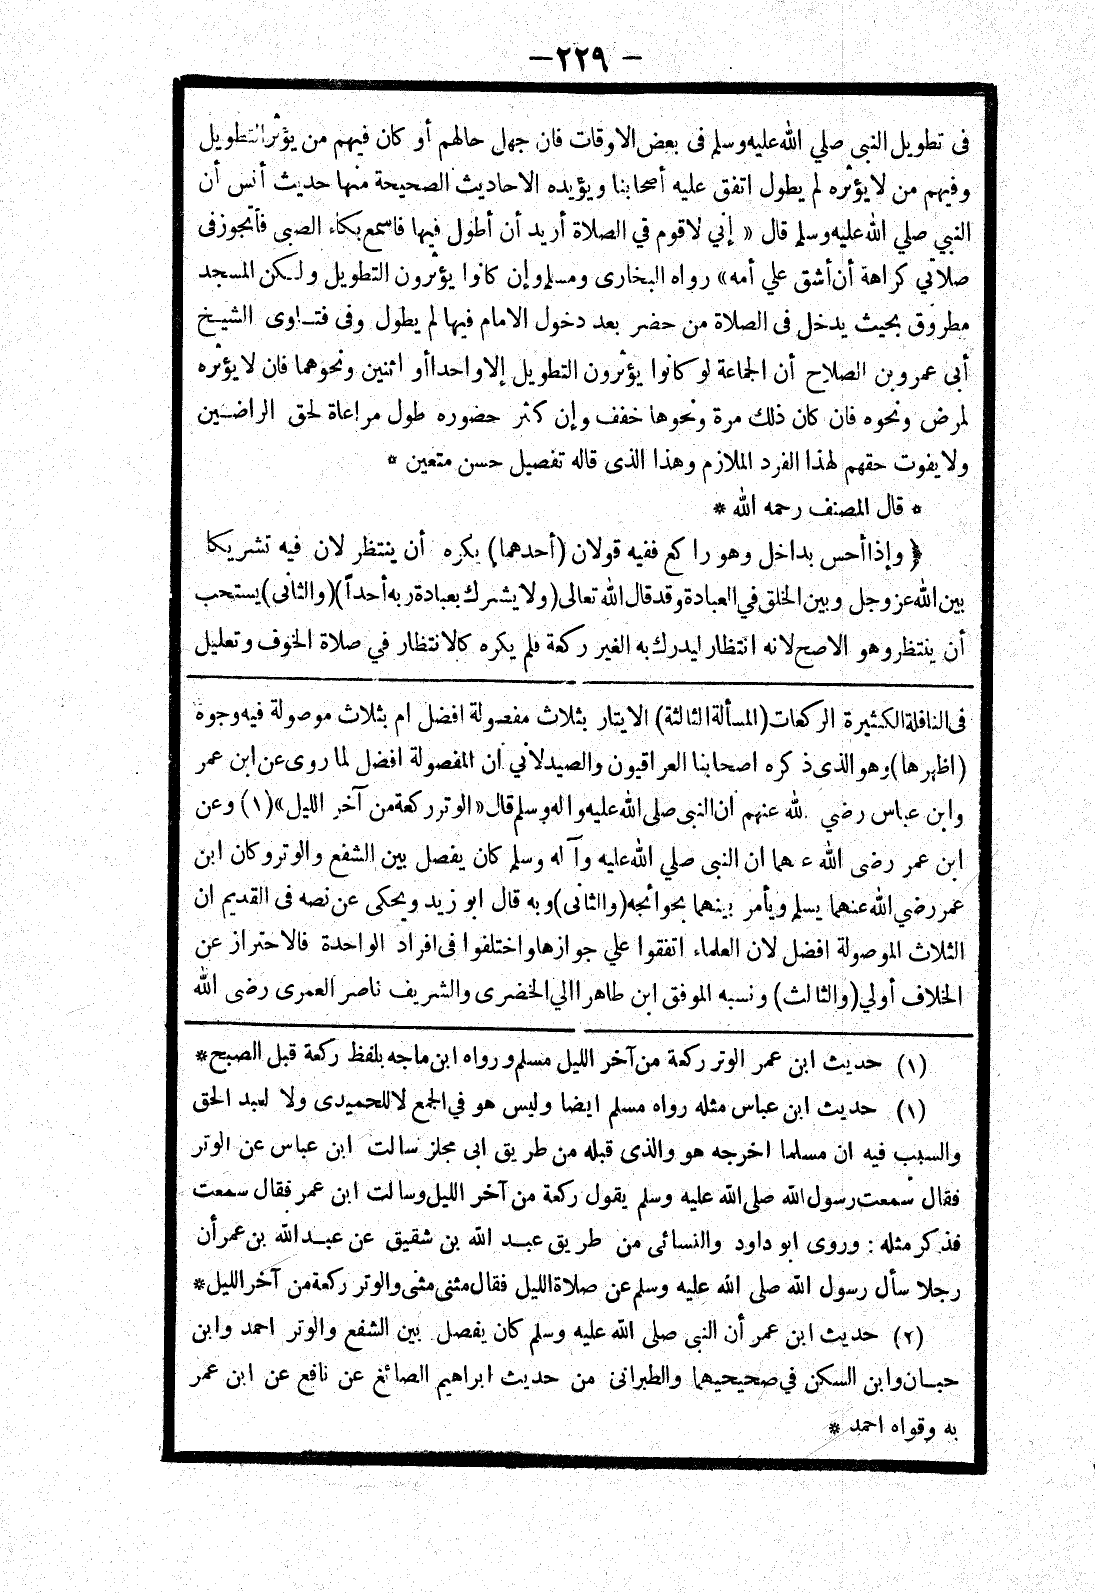 — ٢٢٩ —
فى تطويل النبي صلي الله عليه وسلم فى بعض الاوقات فان جهل حالهم أو كان فيهم من يؤثر التطويل
وفيهم من لا يؤثره لم يطول اتفق عليه أصحابنا ويؤيده الاحاديث الصحيحة منها حديث أنس أن
النبي صلي الله عليه وسلم قال « إني لاقوم في الصلاة أريد أن أطول فيها فاسمع بكاء الصبى فأتجوز فى
صلاتي كراهة أن أشق علي أمه» رواه البخارى ومسلم وإن كانوا يؤثرون التطويل ولـكن المسجد
مطروق بحيث يدخل فى الصلاة من حضر بعد دخول الامام فيها لم يطول وفى فتـاوى الشيـخ
أبى عمرو بن الصلاح أن الجماعة لو كانوا يؤثرون التطويل إلا واحدا أو اثنين ونحوهما فان لا يؤثره
لمرض ونحوه فان كان ذلك مرة ونحوها خفف وإن كثر حضوره طول مراعاة لحق الراضـين
ولا يفوت حقهم لهذا الفرد الملازم وهذا الذى قاله تفصيل حسن متعين *
* قال المصنف رحمه الله *
﴿ وإذا أحس بداخل وهو راكع ففيه قولان (أحدهما) يكره أن ينتظر لان فيه تشريكا
بين الله عز وجل وبين الخلق في العبادة وقد قال الله تعالى (ولا يشرك بعبادة ربه أحداً) (والثانى) يستحب
أن ينتظر وهو الاصح لانه انتظار ليدرك به الغير ركعة فلم يكره كالانتظار في صلاة الخوف وتعليل
فى النافلة الكثيرة الركعات (المسألة الثالثة) الايتار بثلاث مفصولة افضل ام بثلاث موصولة فيه وجوه
(اظهرها) وهو الذى ذكره اصحابنا العراقيون والصيدلاني ان المفصولة افضل لما روى عن ابن عمر
وابن عباس رضي الله عنهم ان النبى صلى الله عليه واله وسلم قال « الوتر ركعة من آخر الليل» (١) وعن
ابن عمر رضى الله عنهما ان النبى صلي الله عليه وآله وسلم كان يفصل بين الشفع والوتر وكان ابن
عمر رضي الله عنهما يسلم ويأمر بينهما بحوائجه (والثانى) وبه قال ابو زيد ويحكى عن نصه فى القديم ان
الثلاث الموصولة افضل لان العلماء اتفقوا علي جوازها واختلفوا فى افراد الواحدة فالاحتراز عن
الخلاف أولي (والثالث) ونسبه الموفق ابن طاهر االي الخضرى والشريف ناصر العمرى رضى الله
(١) حديث ابن عمر الوتر ركعة من آخر الليل مسلم ورواه ابن ماجه بلفظ ركعة قبل الصبح *
(١) حديث ابن عباس مثله رواه مسلم ايضا وليس هو في الجمع لا للحميدى ولا لعبد الحق
والسبب فيه ان مسلما اخرجه هو والذى قبله من طريق ابى مجلز سالت ابن عباس عن الوتر
فقال سمعت رسول الله صلى الله عليه وسلم يقول ركعة من آخر الليل وسالت ابن عمر فقال سمعت
فذكر مثله : وروى ابو داود والنسائى من طريق عبـد الله بن شقيق عن عبـد الله بن عمر أن
رجلا سأل رسول الله صلى الله عليه وسلم عن صلاة الليل فقال مثنى مثنى والوتر ركعة من آخر الليل *
(٢) حديث ابن عمر أن النبى صلى الله عليه وسلم كان يفصل بين الشفع والوتر احمد وابن
حبـان وابن السكن في صحيحيهما والطبرانى من حديث ابراهيم الصائغ عن نافع عن ابن عمر
به وقواه احمد *